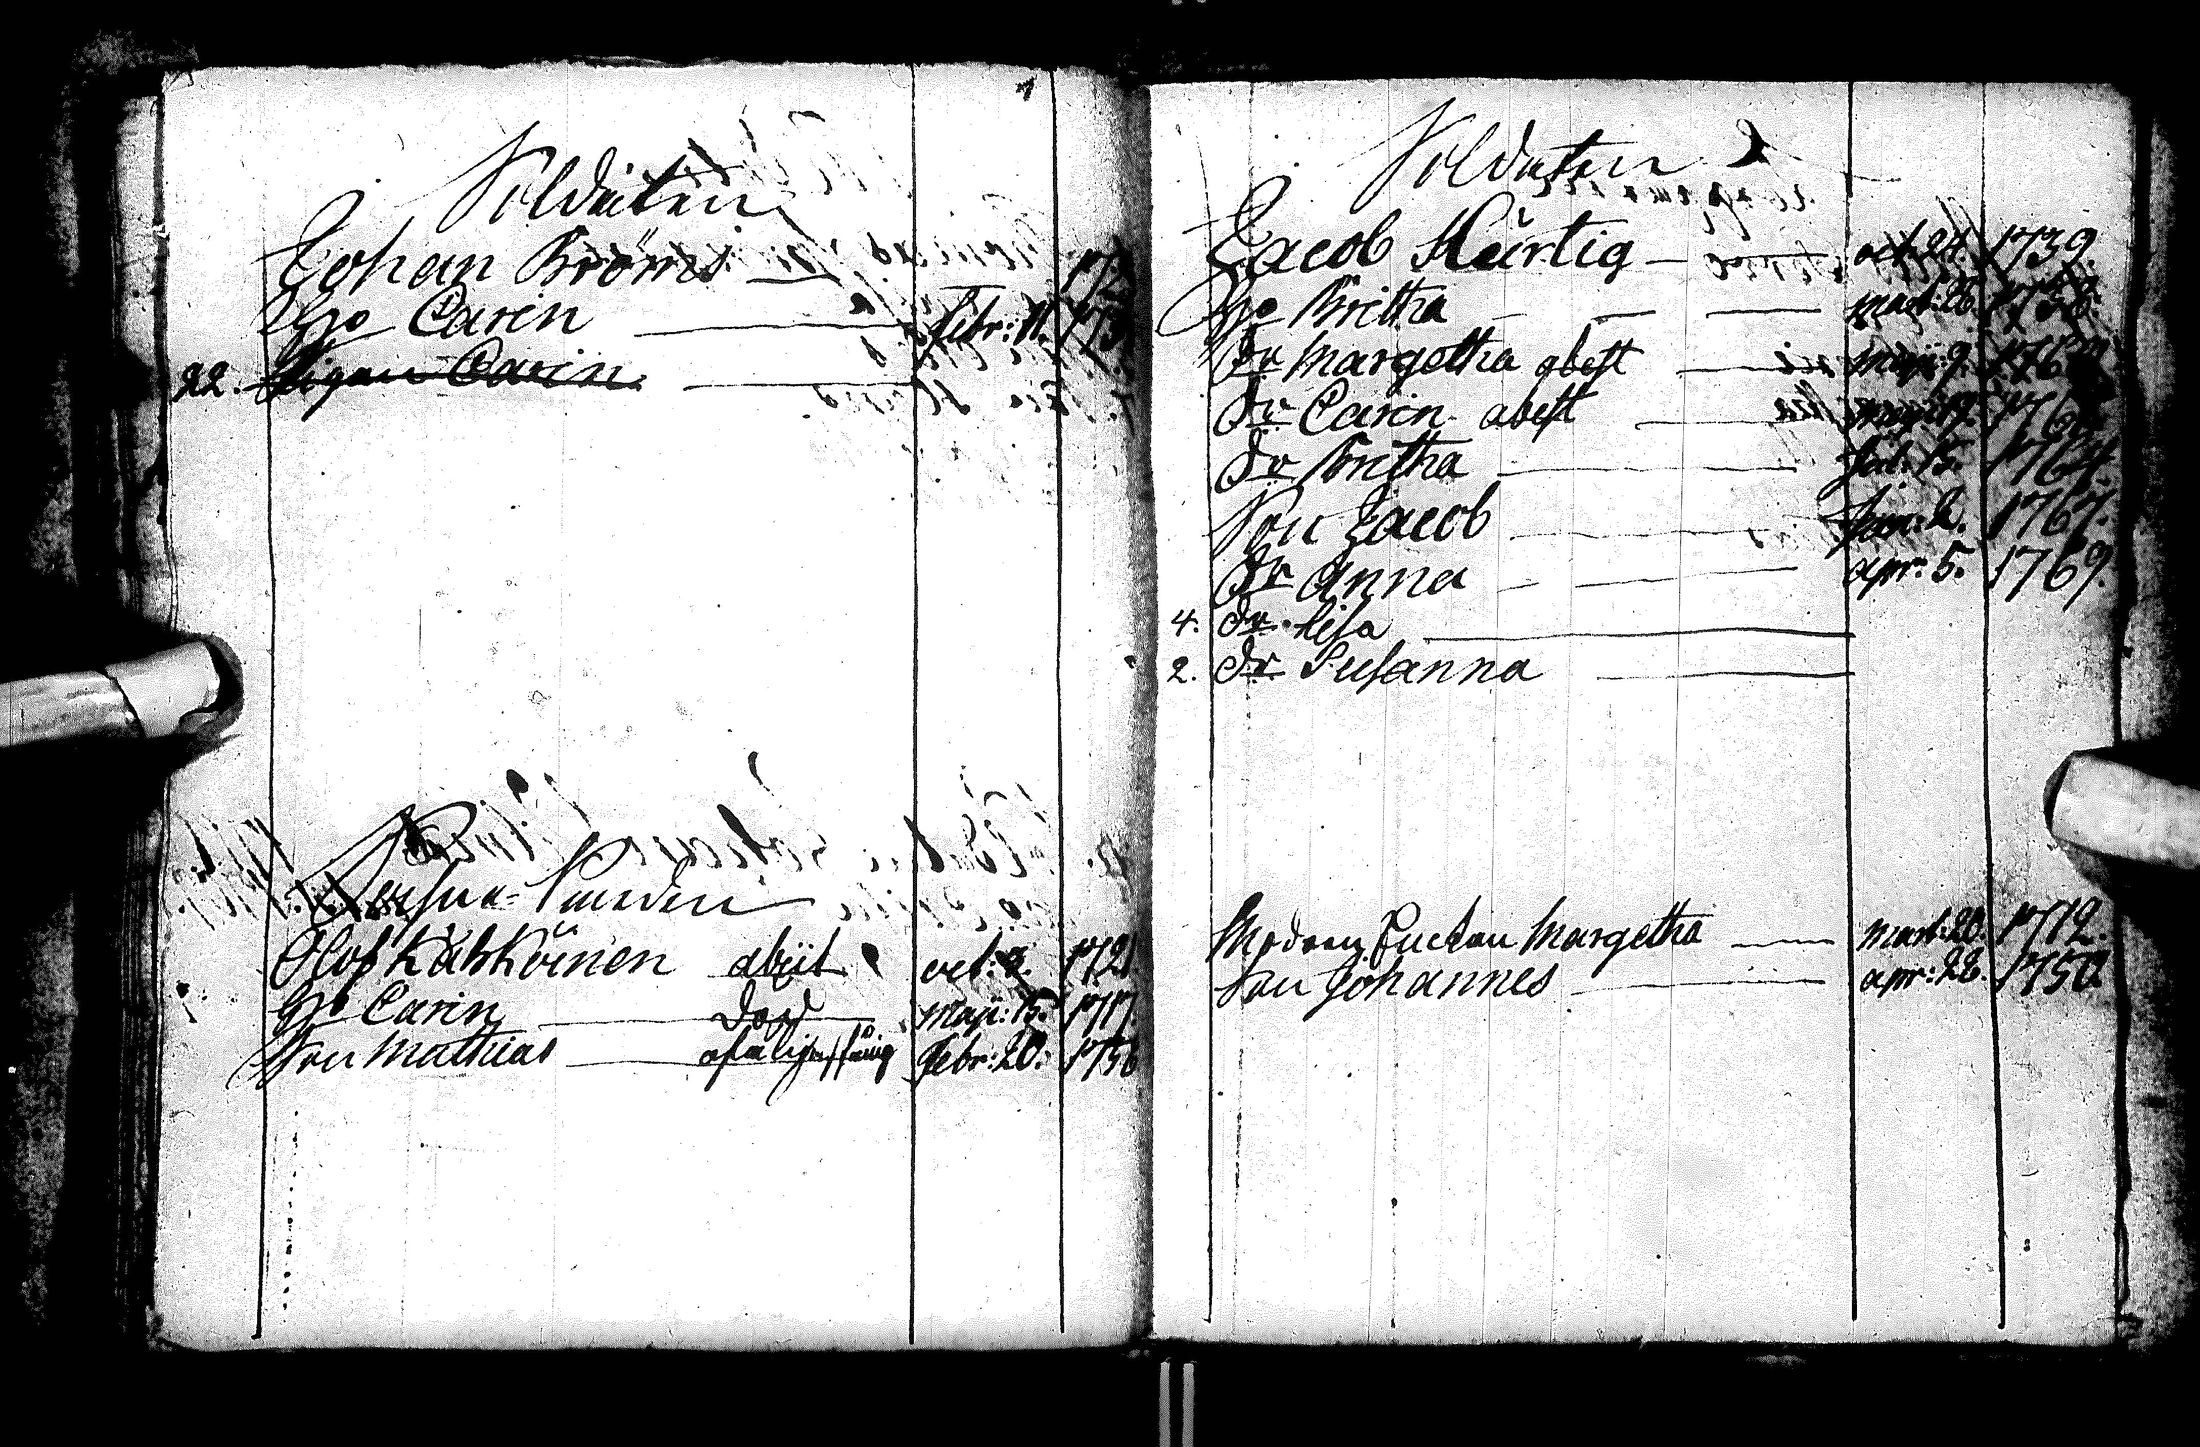 Soldaten
Johan Bröms 172
Hjo Carin febr: 11. 173
22. Pigan Carin.
Persu-
Olof Kähköinen abiit oct: 1721.
Hjo Carin död maji: 15. 1717.
Son Mathias febr: 20. 1756
Soldaten
Jacob Hurtig oct. 24. 1739.
Hjo Britha mart: 26. 1738.
Dr Margetha abest maji: 9. 176
Dr Carin abest maji: 19. 176
Dr Britha 15. 1764.
Son Jacob jan: 2. 1767.
Dr Anna apr: 5. 1769.
4. Dr Lisa
2. Dr Susanna
Modren Enckan Margetha mart: 20. 1712.
Son Johannes apr: 28. 1750